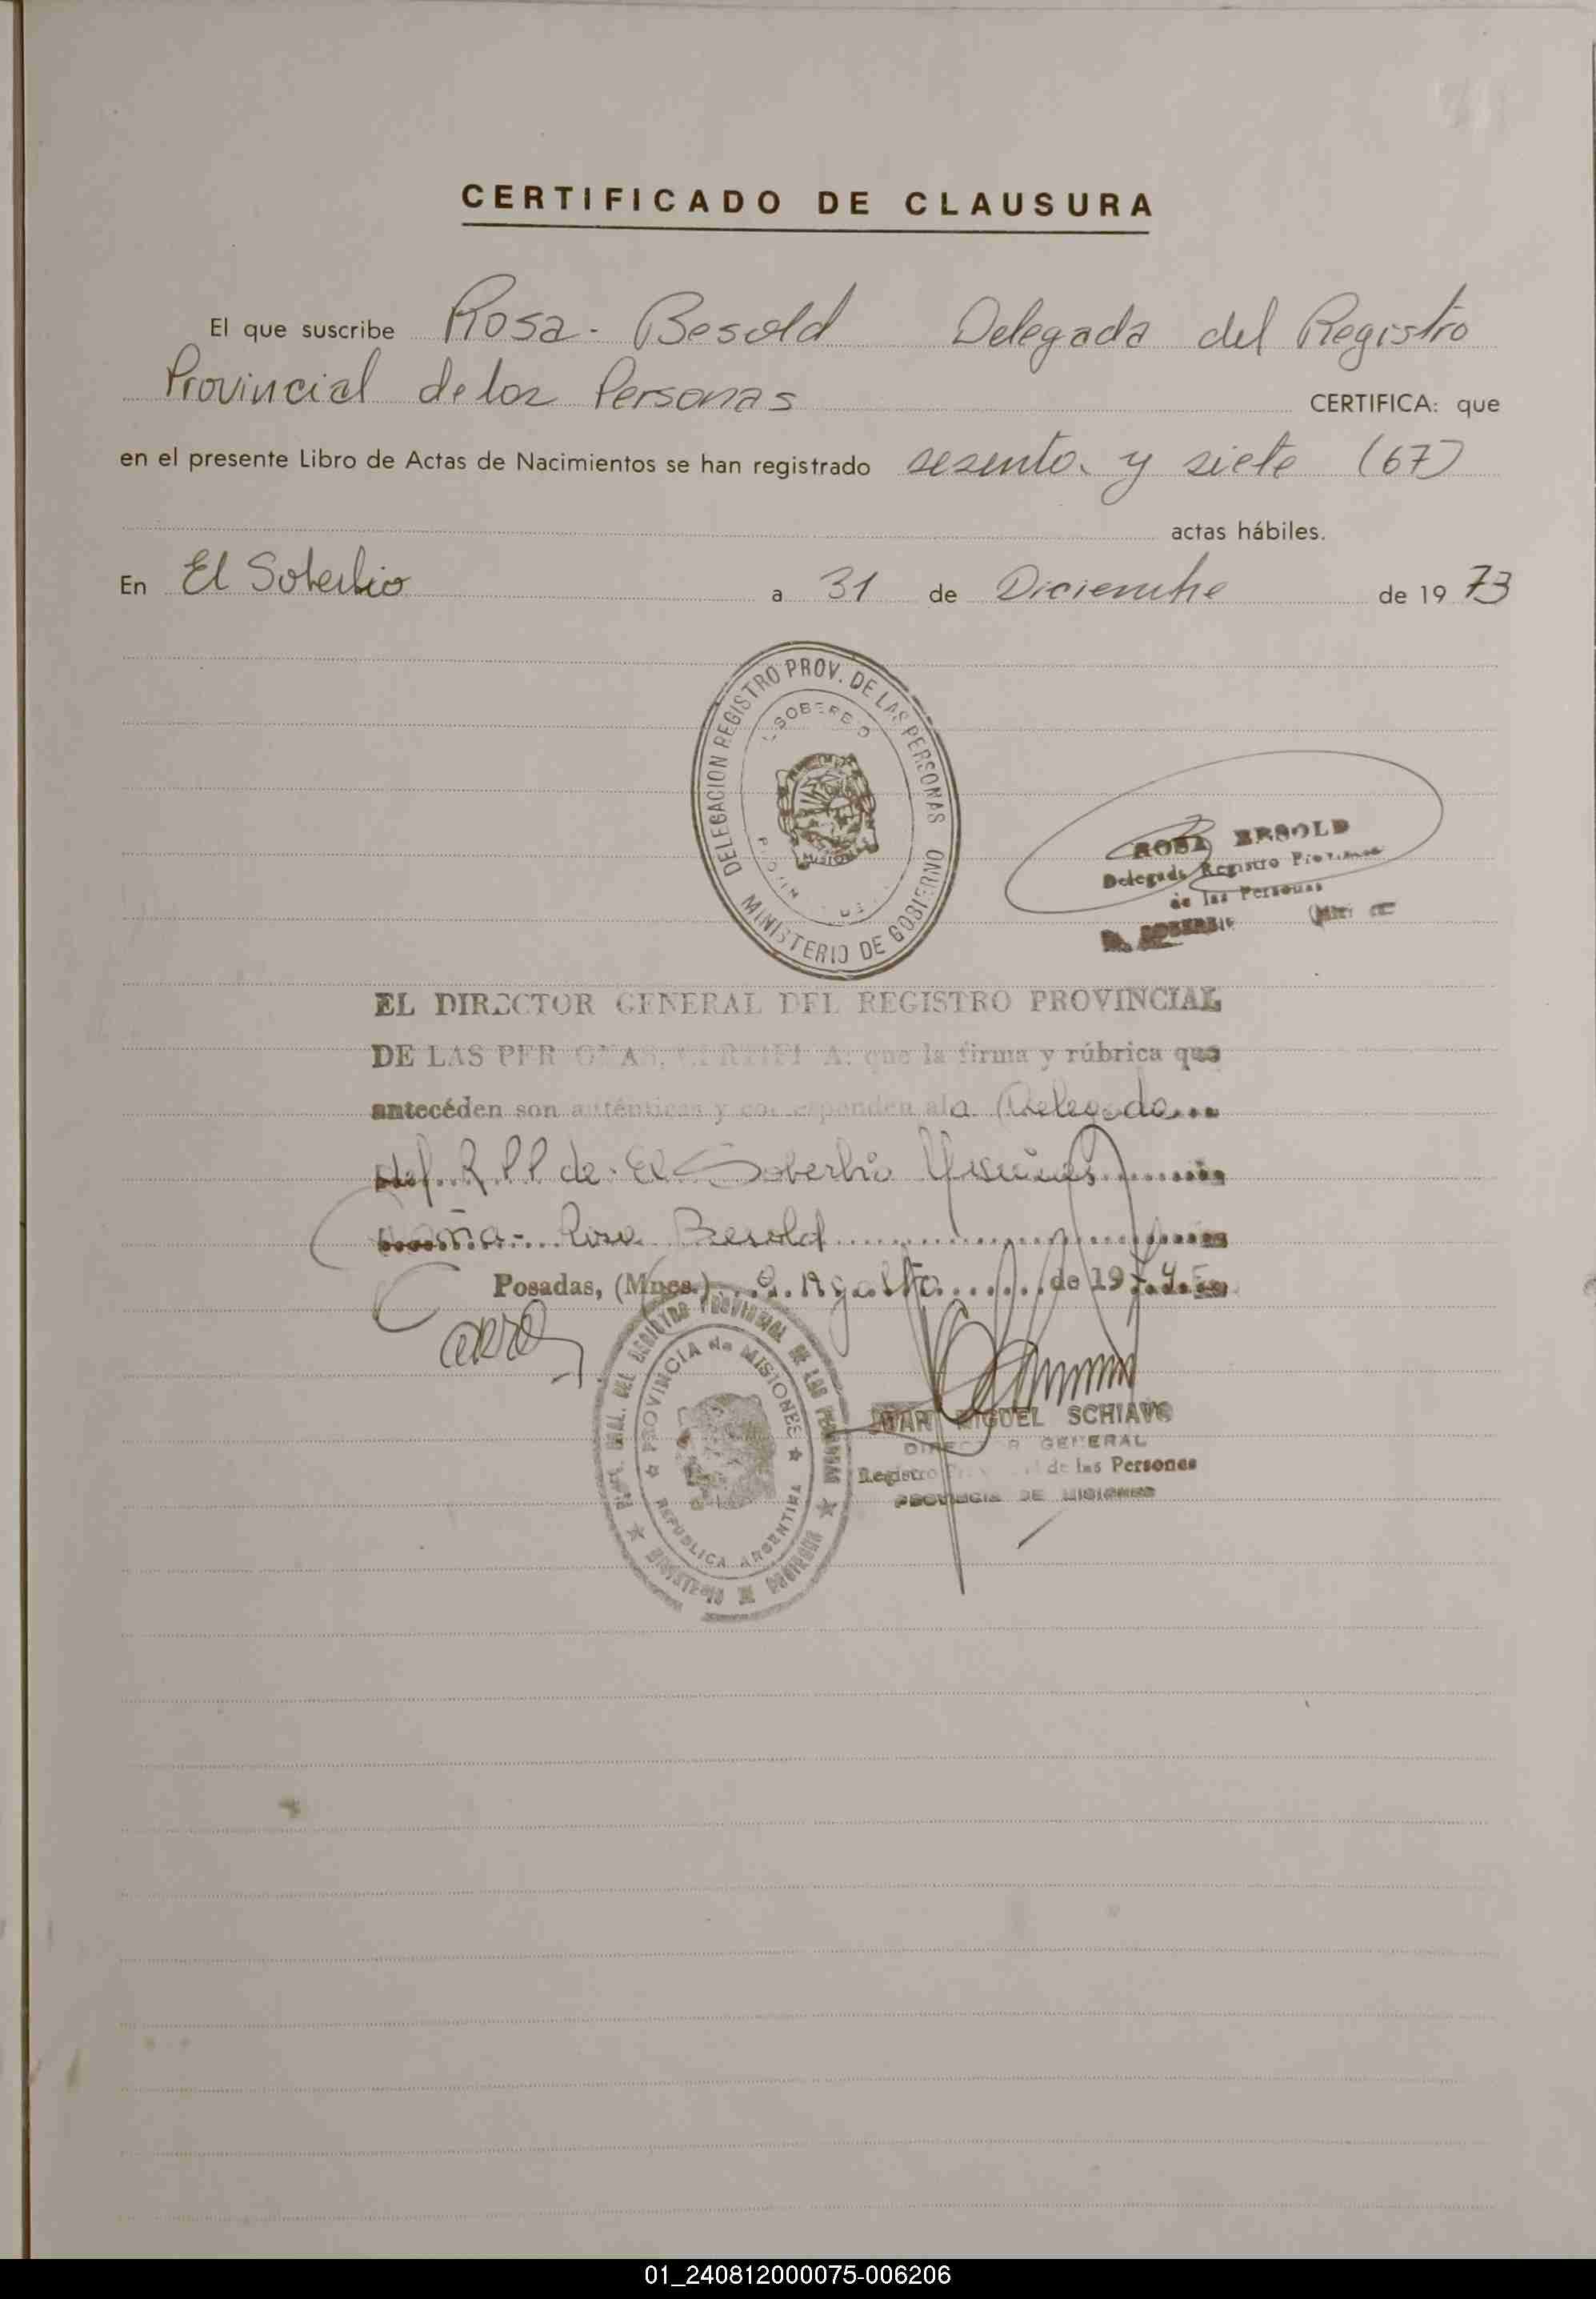 CERTIFICADO DE CLAUSURA
El que suscribe Rosa - Besold Delegada del Registro
Provincial de las Personas CERTIFICA: que
en el presente Libro de Actas de Nacimientos se han registrado sesenta y siete (67)
actas hábiles.
En El Soberbio a 31 de Diciembre de 19 73
DELEGACION REGISTRO PROV. DE LAS PERSONAS
MINISTERIO DE GOBIERNO
SOBERBIO
ROSA BESOLD
Delegada Registro Provincial
de las Personas
EL SOBERBIO
EL DIRECTOR GENERAL DEL REGISTRO PROVINCIAL
DE LAS PERSONAS, CERTIFICA: que la firma y rúbrica que
antecéden son auténticas y corresponden a la Delegada
del R.P.P de El Soberbio Misiones
doña - Rosa Besold
Posadas, (Mnes.) Agosto de 197
DEL REGISTRO PROVINCIAL DE LAS PERSONAS
MINISTERIO DE GOBIERNO
PROVINCIA de MISIONES
REPUBLICA ARGENTINA
MIGUEL SCHIAVO
DIRECTOR GENERAL
Registro Provincial de las Personas
PROVINCIA DE MISIONES
01_240812000075-006206